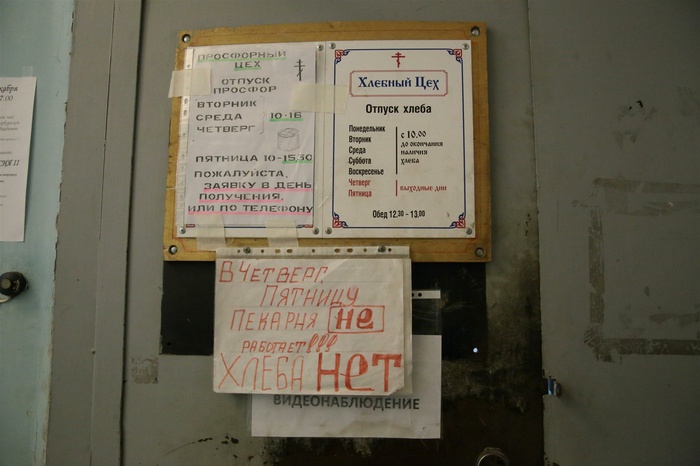 кабря
7.00
ПРОСФОРНЫЙ
ЦЕХ
ОТПУСК
ПРОСФОР
ВТОРНИК
СРЕДА 10-16
ЧЕТВЕРГ
ПЯТНИЦА 10-15.30
ПОЖАЛУЙСТА,
ЗАЯВКУ В ДЕНЬ
ПОЛУЧЕНИЯ,
ИЛИ ПО ТЕЛЕФОНУ
Хлебный Цех
Отпуск хлеба
Понедельник
Вторник
Среда
Суббота
Воскресенье
Четверг
Пятница
с 10.00
до окончания
наличия
хлеба
выходные дни
Обед 12.30 - 13.00
В ЧЕТВЕРГ,
ПЯТНИЦУ
ПЕКАРНЯ НЕ
РАБОТАЕТ!!!
ХЛЕБА НЕТ
ВИДЕОНАБЛЮДЕНИЕ